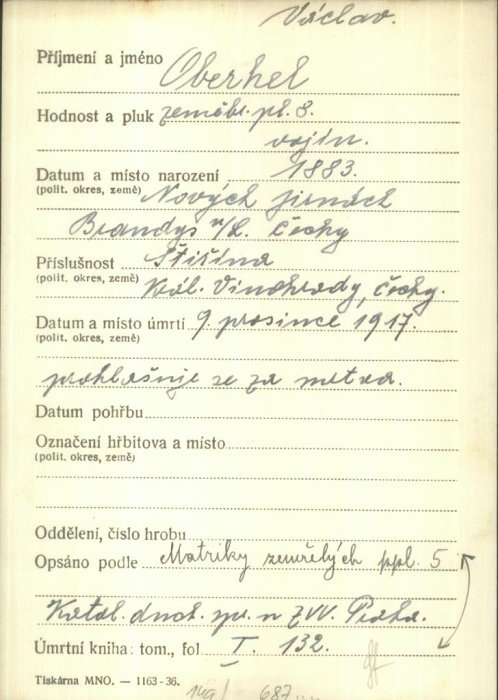 Václav.
Příjmení a jméno Oberhel
Hodnost a pluk zeměbr. pl. 8.
vojín.
Datum a místo narození 1883.
(polit. okres, země) Nových Jirnách
Brandys n/L. Čechy
Příslušnost Štiřína
(polit. okres, země) Král. Vinohrady, Čechy.
Datum a místo úmrtí 9. prosince 1917.
(polit. okres, země)
prohlašuje se za mrtva.
Datum pohřbu
Označení hřbitova a místo
(polit. okres, země)
Oddělení, číslo hrobu
Opsáno podle Matriky zemřelých ppl. 5
Katol. duch. spr. n ZVV. Praha.
Úmrtní kniha: tom., fol I. 132.
Tiskárna MNO. — 1163-36.
149/ 687